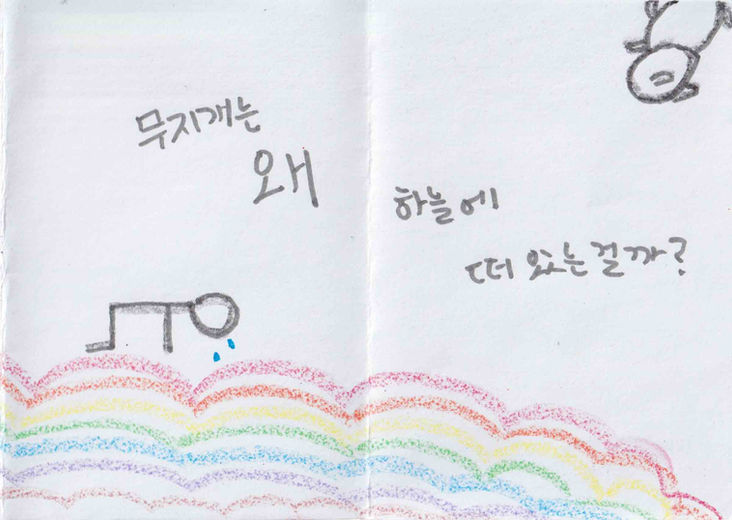 무지개는
왜
하늘에
떠 있는걸까?